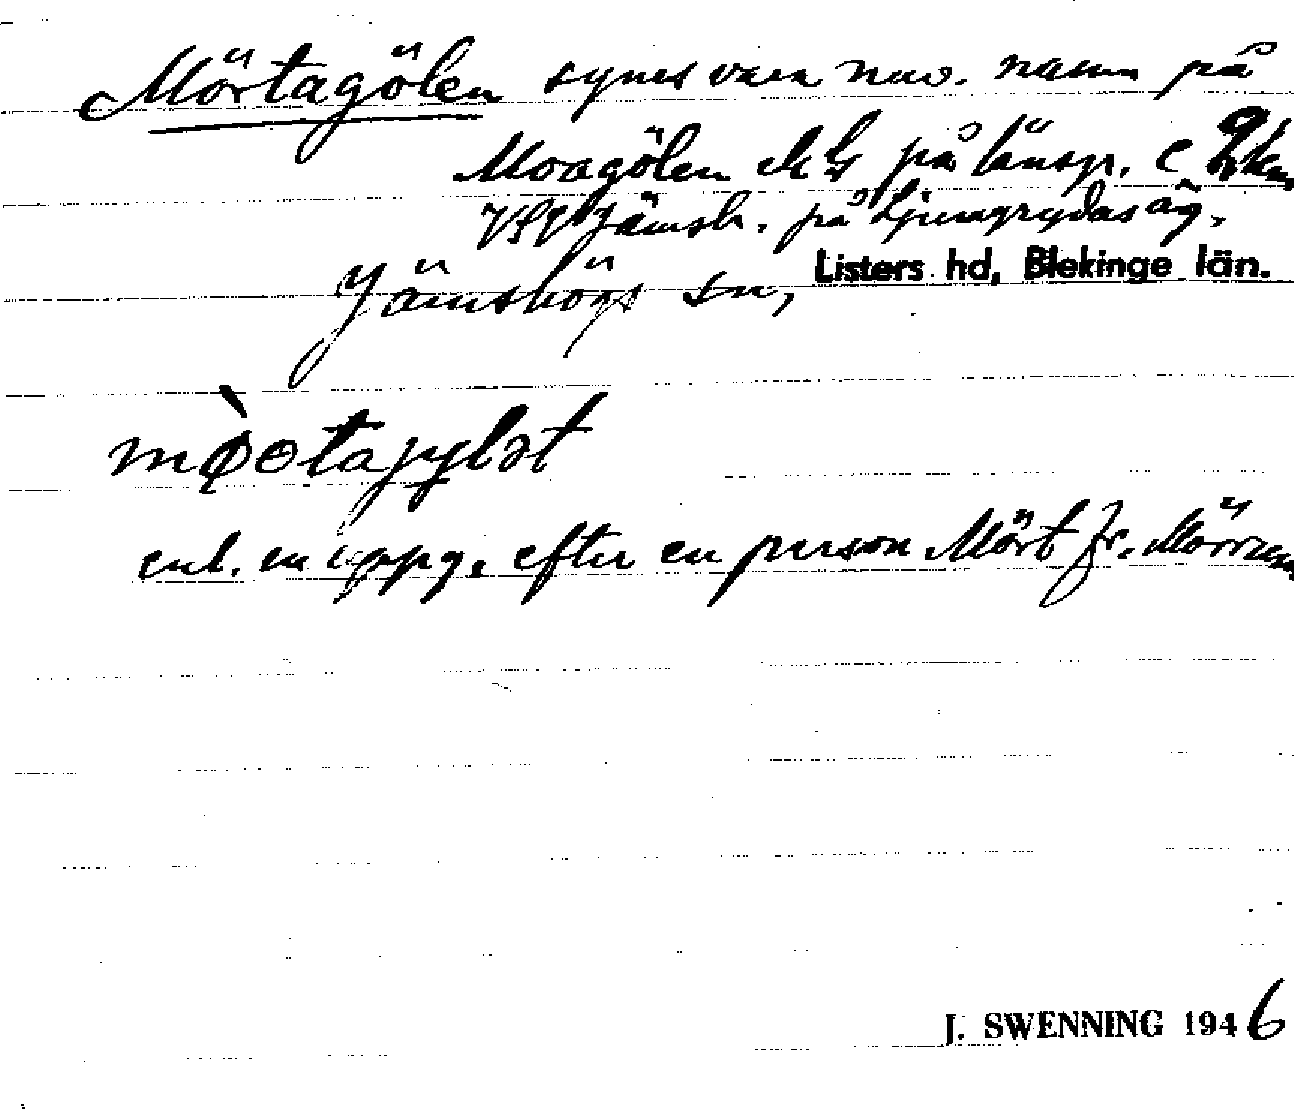 Mörtagölen synes vara nuv. namn på
Moagölen på länspr. C 2 km
VSV Jämsh. på Ljungrydas äg.
Jämshögs sn, Listers hd, Blekinge län.
enl. en uppg. efter en person Mört jfr. Mörrum
J. SWENNING 1946